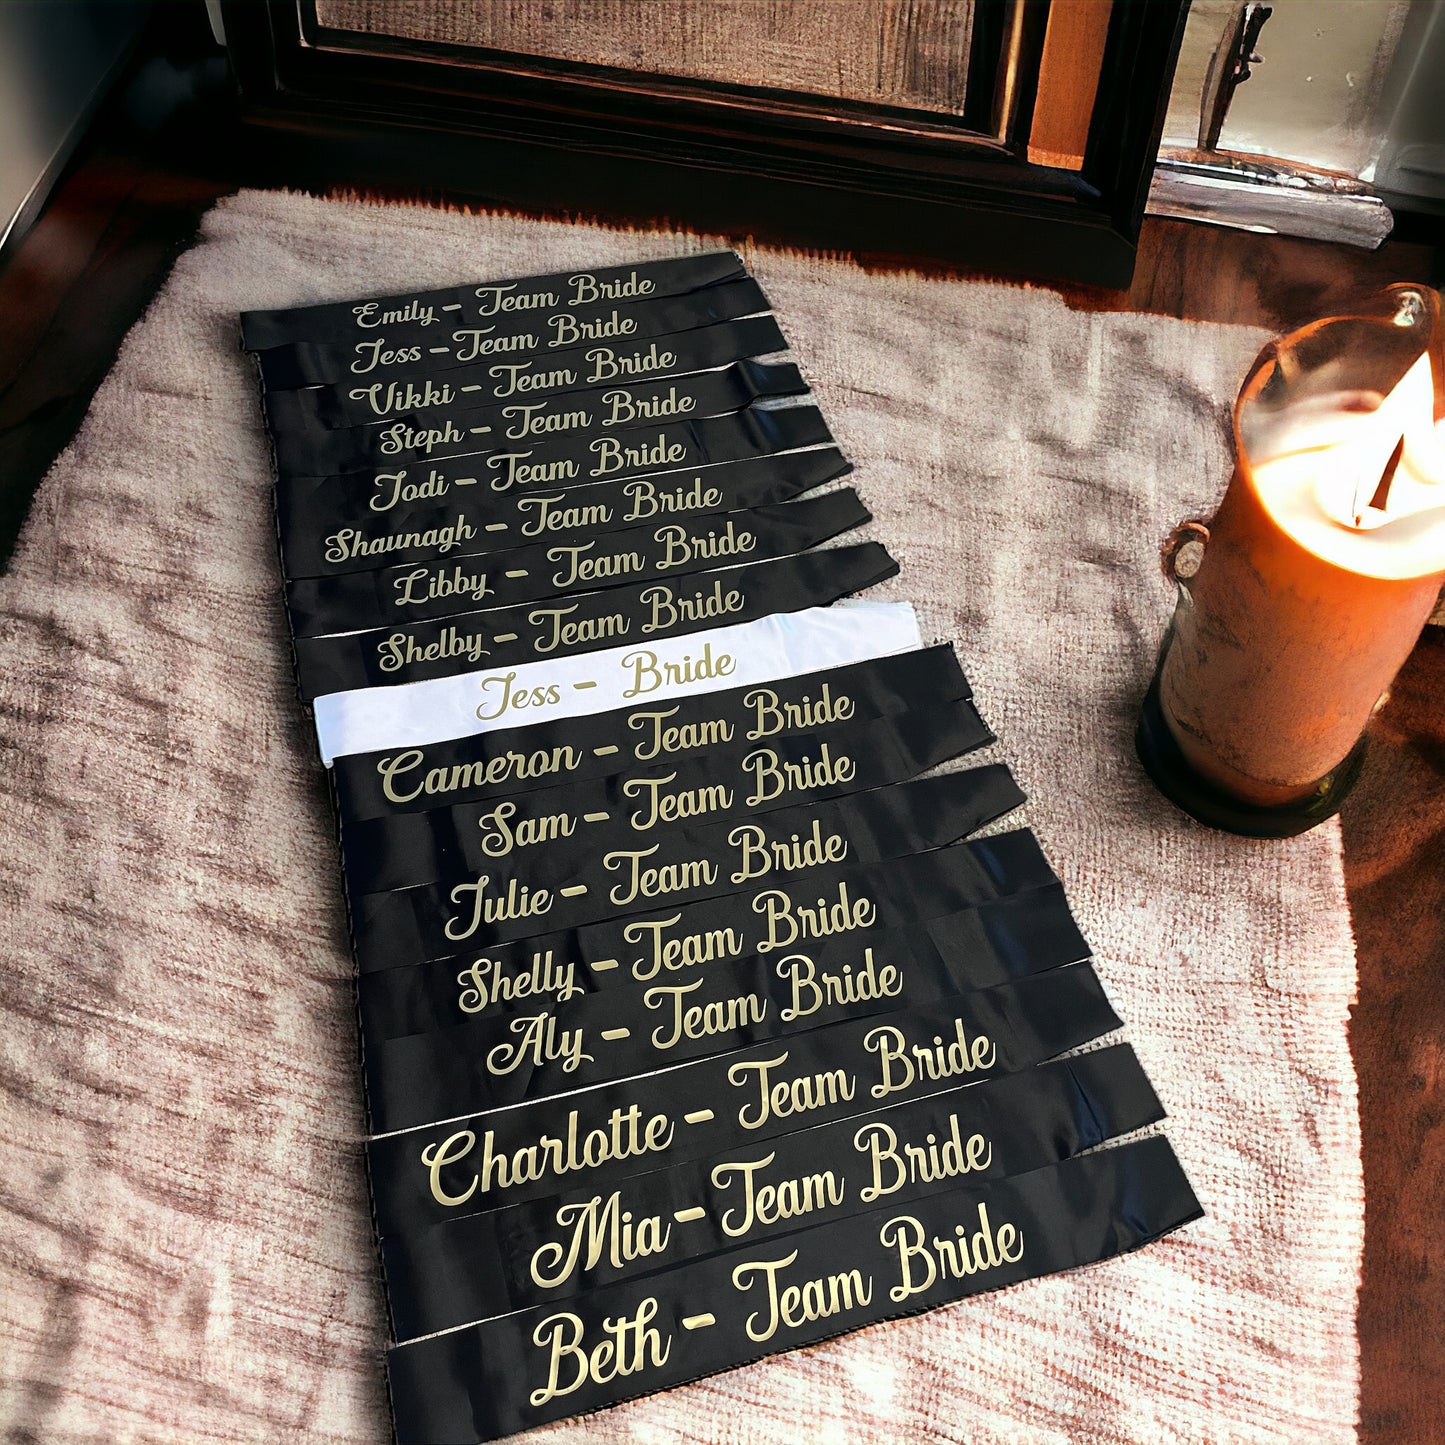 Emily - Team Bride
Jess - Team Bride
Vikki - Team Bride
Steph - Team Bride
Jodi - Team Bride
Shaunagh - Team Bride
Libby - Team Bride
Shelby - Team Bride
Jess - Bride
Cameron - Team Bride
Sam - Team Bride
Julie - Team Bride
Shelly - Team Bride
Aly - Team Bride
Charlotte - Team Bride
Mia - Team Bride
Beth - Team Bride